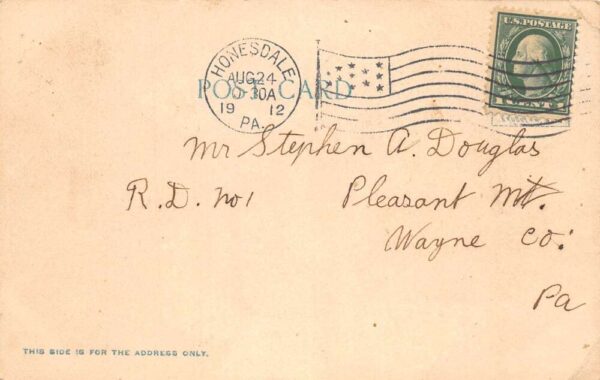 U.S. POSTAGE
1 CENT 1
HONESDALE
AUG 24
30A
1912
PA.
POST CARD
Mr Stephen A. Douglas
R.D. No 1 Pleasant Mt.
Wayne Co.
Pa
THIS SIDE IS FOR THE ADDRESS ONLY.